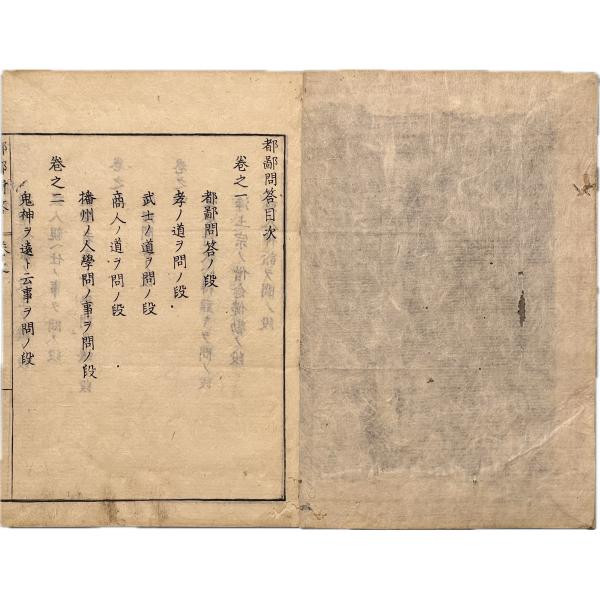 都鄙問答目次
巻之一
都鄙問答ノ段
孝ノ道ヲ問ノ段
武士ノ道ヲ問ノ段
商人ノ道ヲ問ノ段
播州ノ人學問ノ事ヲ問ノ段
巻之二
鬼神ヲ遠ト云事ヲ問ノ段